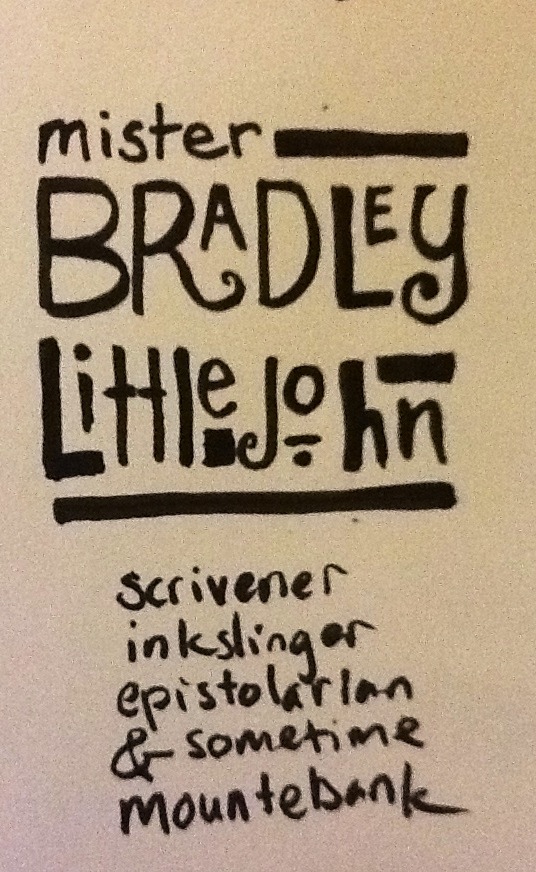 mister
BRADLEY
LittleJohn
scrivener
inkslinger
epistolarian
& sometime
mountebank